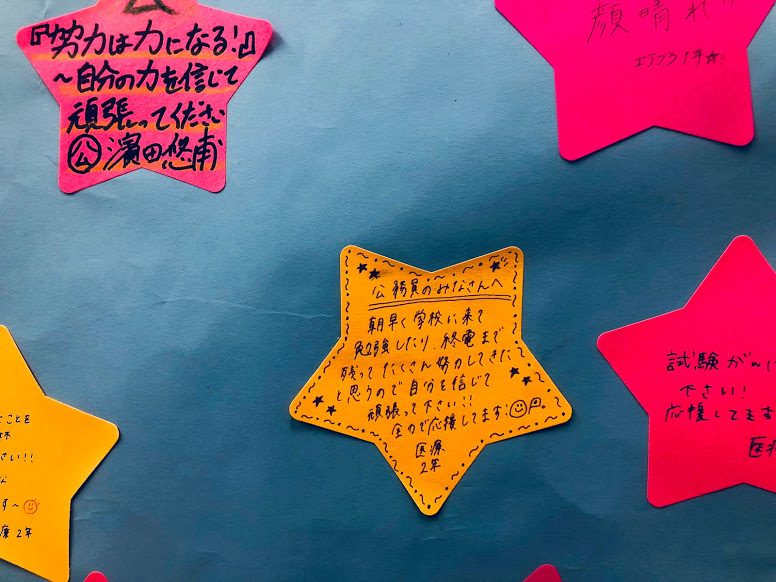 『努力は力になる!』
~自分の力を信じて
頑張ってください
公 濱田悠甫
顔晴れ
公務員のみなさんへ
朝早く学校に来て
勉強したり、終電まで
残ってたくさん努力してきた
と思うので自分を信じて
頑張って下さい!!
全力で応援してます!
医療
2年
試験がんば
下さい!
応援してます
医療
ことを
さい!!
す~
療2年